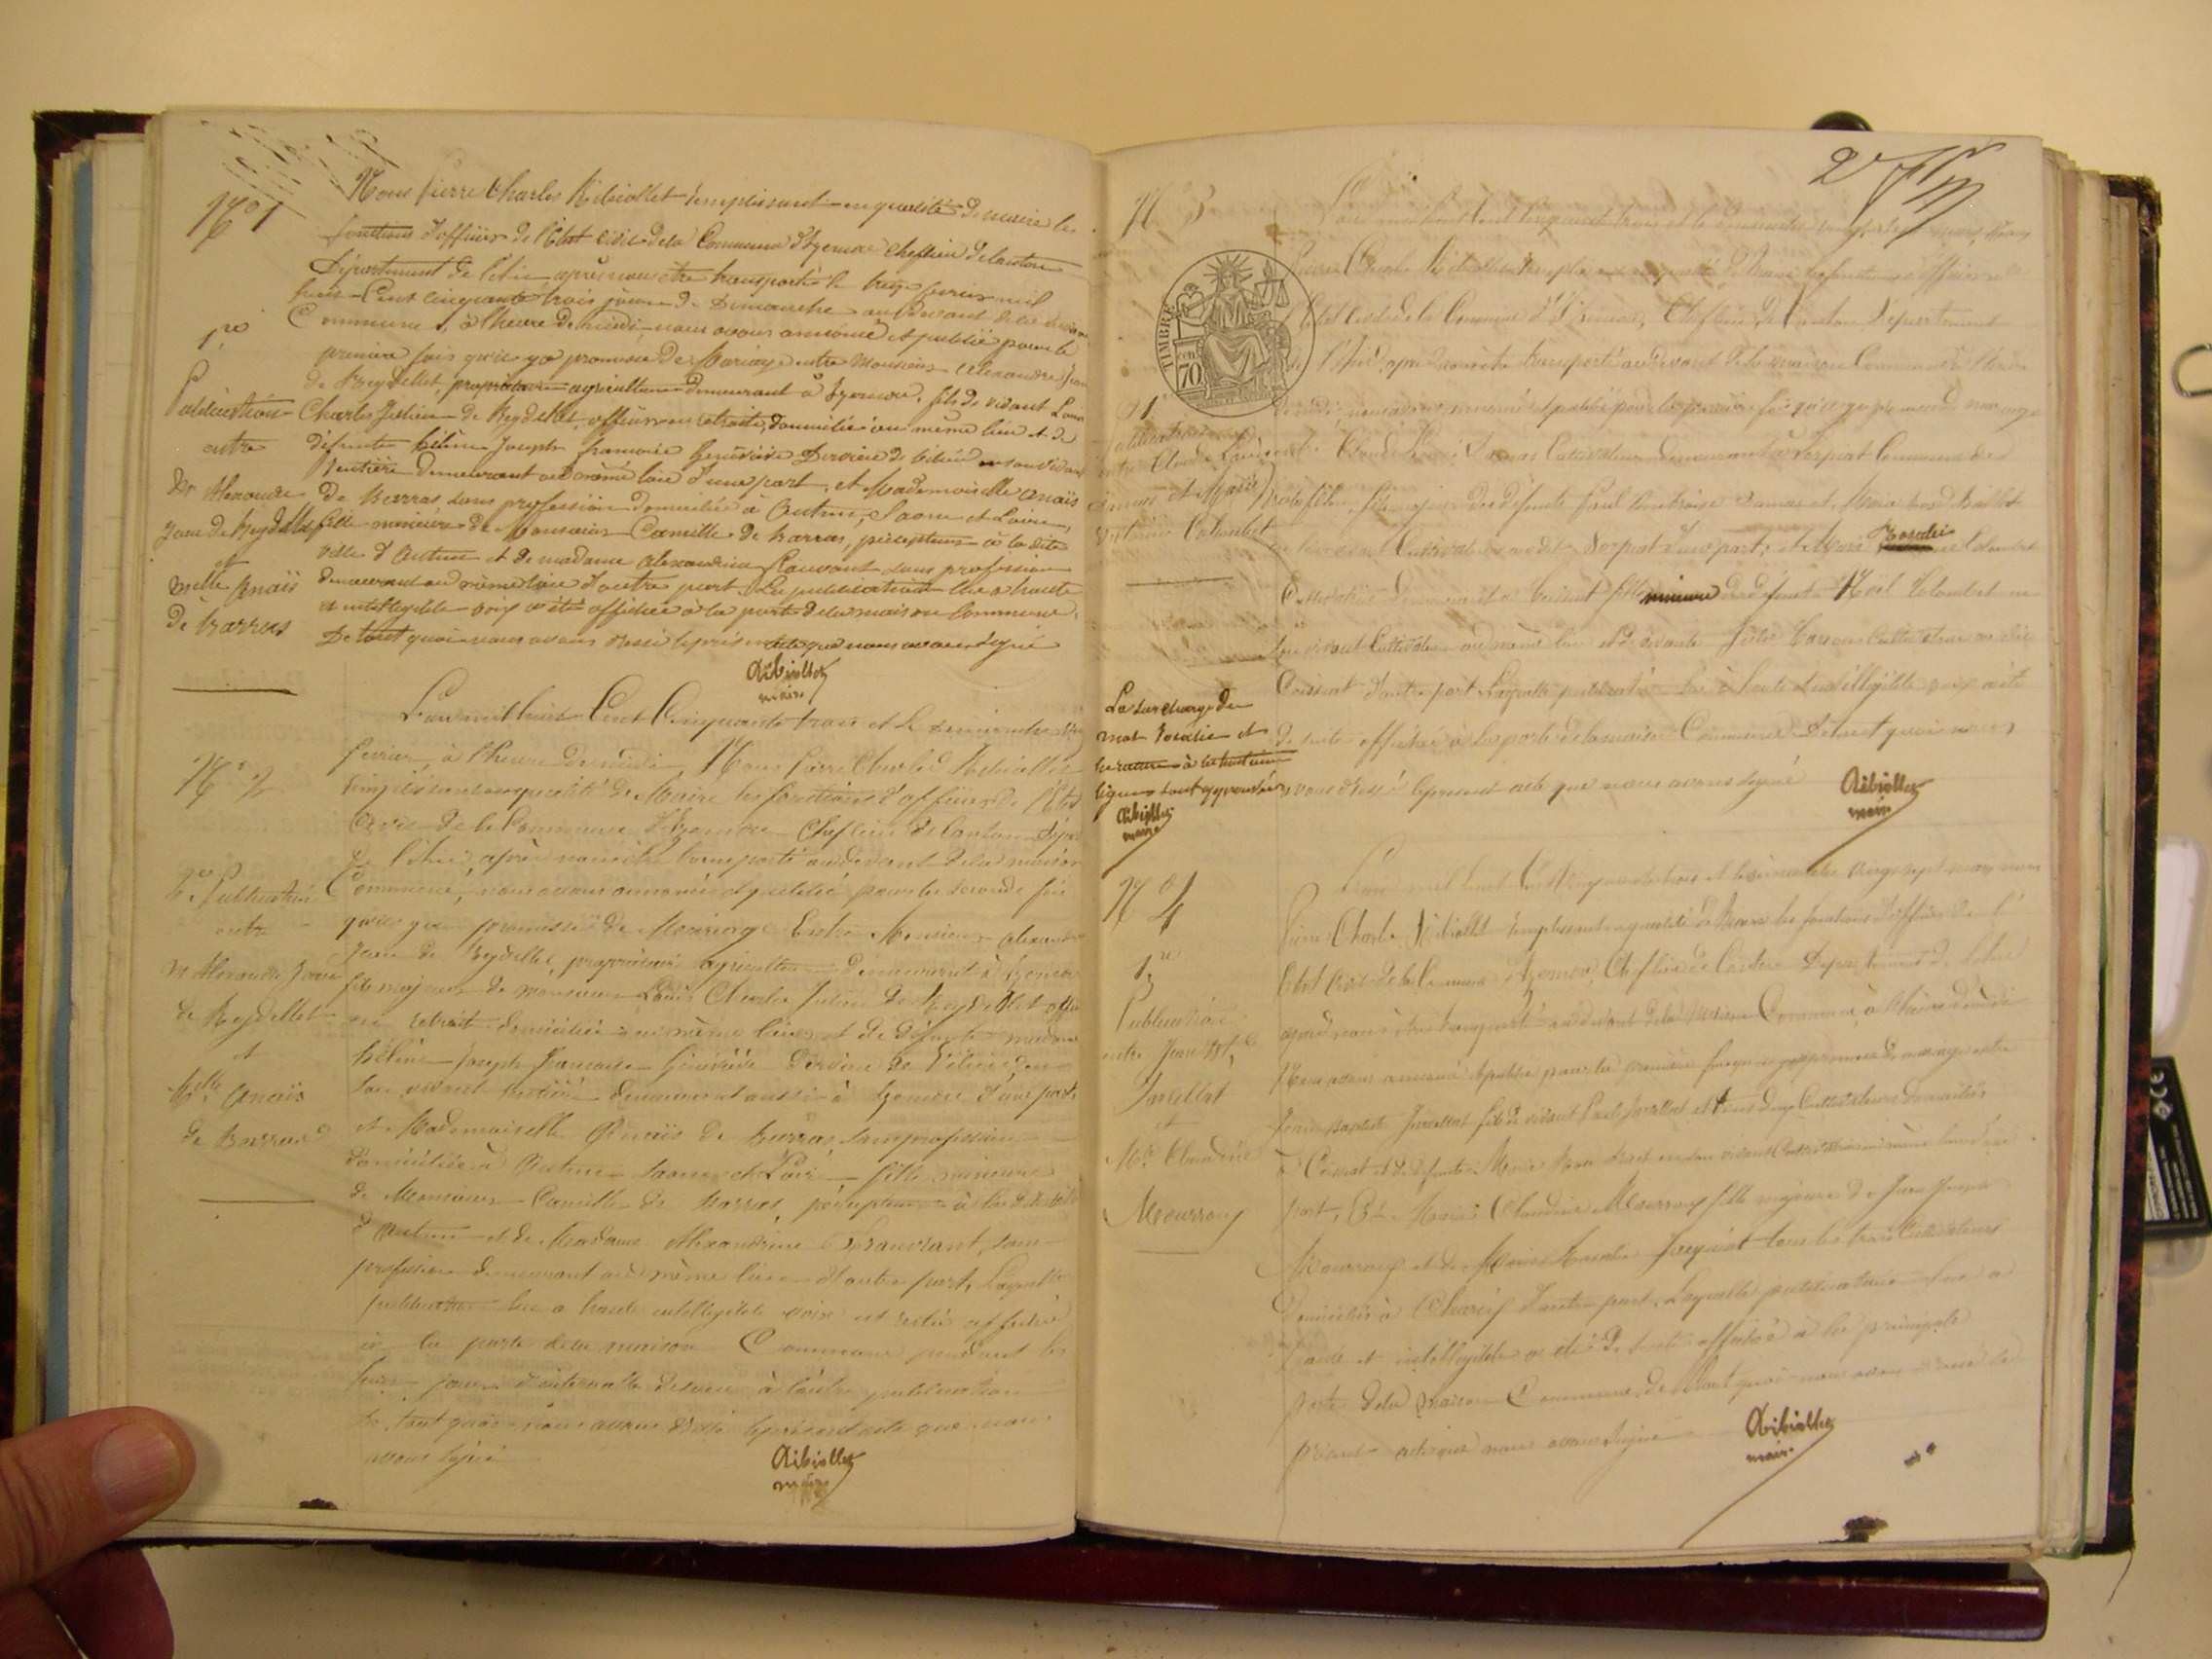 N° 1
1re
Publication
entre
Mr Alexandre
Jean de Reydellet
et
Melle Anaïs
de Barras
Nous Pierre Charles Ribiollet remplissant en qualité de maire les
fonctions d'officier de l'État civil de la Commune d'Izernore chef lieu de Canton
Département de l'Ain après nous être transporté le treize fevrier mil
huit Cent Cinquante trois jour de Dimanche au devant de la maison
Commune, à l'heure de midi nous avons annoncé et publié pour la
première fois qu'il y a promesse de Mariage entre Monsieur Alexandre Jean
de Reydellet, propriétaire agriculteur demeurant à Izernore, fils de vivant Louis
Charles Julien de Reydellet, officier en retraite, domicilié au même lieu et de
défunte hélène Joseph françoise Geneviève de en son vivant
rentière demeurant au même lieu d'une part, et Mademoiselle Anaïs
de Barras sans profession domiciliée à Autun, Saone et Loire,
fille mineure de Monsieur Camille de barras, percepteur à la dite
ville d'Autun et de madame Alexandrine sans profession
demeurant au même lieu d'autre part. La publication lue à haute
et intelligible voix a été affichée à la porte de la maison Commune.
De tout quoi nous avons dressé le présent acte que nous avons signé
Ribiollet
maire
N° 2
2e Publication
entre
Mr Alexandre Jean
de Reydellet
et
Melle Anaïs
de Barras
L'an mil huit Cent Cinquante trois et le dimanche
fevrier, à l'heure de midi, Nous Pierre Charles Ribiollet
remplissant en qualité de Maire les fonctions d'officier de l'État
Civil de la Commune d'Izernore Chef lieu de Canton
de l'Ain, après nous être transporté au devant de la maison
Commune, nous avons annoncé et publié pour la seconde fois
qu'il y a promesse de Mariage Entre Monsieur Alexandre
Jean de Reydellet, propriétaire agriculteur demeurant à Izernore
fils majeur de monsieur Louis Charles Julien de Reydellet
en retrait domicilié au même lieu et de défunte madame
hélène Joseph françoise Geneviève de en
son vivant rentière demeurant aussi à Izernore d'une part,
et Mademoiselle Anaïs de barras, sans profession
domiciliée à Autun Saone et Loire fille mineure
de Monsieur Camille de Barras, percepteur à la dite ville
d'Autun et de Madame Alexandrine sans
profession demeurant au même lieu d'autre part, Laquelle
publication lue a haute intelligible voix est restée affichée
à la porte de la maison Commune pendant les
huit jours d'intervalle de l'une à l'autre publication
de tout quoi nous avons dressé le présent acte que nous
avons signé
Ribiollet
maire
2e
N° 3
TIMBRE
70
1re
publication
entre Claude Louis
Damas et Marie
Colombet
L'an mil huit Cent Cinquante trois et le dimanche vingt mars, Nous
Pierre Charles Ribiollet remplissant en qualité de Maire les fonctions d'officier de
l'État Civil de la Commune d'Izernore, Chef lieu de Canton Département
de l'Ain, après nous être transporté au devant de la maison Commune à l'heure
de midi nous avons annoncé et publié pour la première fois qu'il y a promesse de mariage
entre Claude Louis Damas Cultivateur demeurant à Commune de
fils de défunts Paul Damas et
d'une part, et Marie Rosalie Colombet
Cultivatrice demeurant à Ceissiat fille mineure de défunt Noël Colombet en
son vivant Cultivateur au même lieu et de vivante Cultivatrice au dit
Ceissiat d'autre part Laquelle publication lue à haute et intelligible voix a été
de suite affichée à la porte de la maison Commune De tout quoi nous
avons dressé le présent acte que nous avons signé
Ribiollet
maire
La surcharge du
mot Rosalie et
la rature à la huitième
lignes sont approuvées
Ribiollet
maire
N° 4
1re
Publication
entre Jean Bte
Javellot
et
Me Claudine
Mourroux
L'an mil huit Cent Cinquante trois et le dimanche vingt sept mars nous
Pierre Charles Ribiollet remplissant en qualité de Maire les fonctions d'officier de l'
État Civil de la Commune d'Izernore, Chef lieu de Canton Département de l'Ain
après nous être transporté au devant de la Maison Commune, à l'heure de midi
Nous avons annoncé et publié pour la première fois qu'il y a promesse de mariage entre
Jean Baptiste Javellot fils de vivant Javellot et tous deux Cultivateurs domiciliés
à Ceissiat et de défunte Marie en son vivant Cultivatrice au même lieu d'une
part, Et Marie Claudine Mourroux fille majeure de Jean Joseph
Mourroux et de Marie tous les trois Cultivateurs
domiciliés à Charix d'autre part. Laquelle publication lue à
haute et intelligible a été de suite affichée à la principale
porte de la maison Commune, de tout quoi nous avons dressé le
présent acte que nous avons signé
Ribiollet
maire